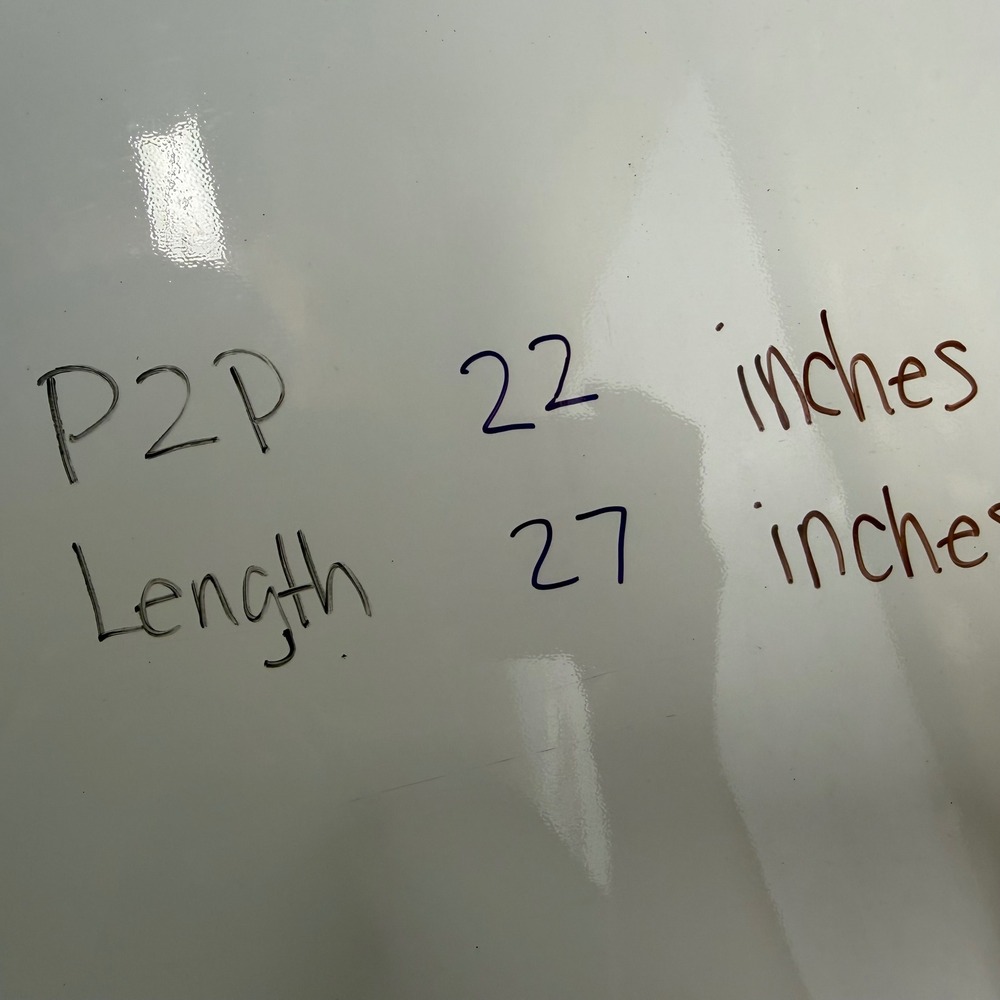 P2P 22 inches
Length 27 inches